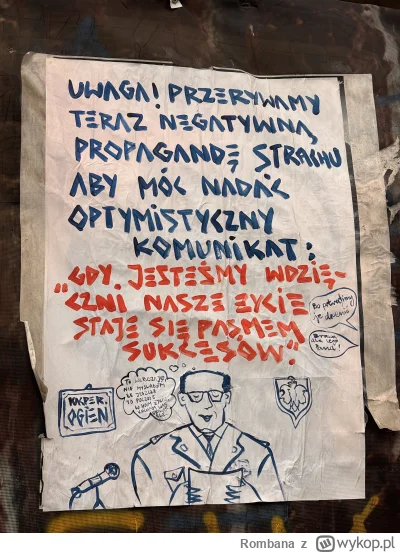 UWAGA! PRZERYWAMY
TERAZ NEGATYWNĄ
PROPAGANDĘ STRACHU
ABY MÓC NADAĆ
OPTYMISTYCZNY
KOMUNIKAT:
„GDY JESTEŚMY WDZIĘ-
CZNI NASZE ŻYCIE
STAJE SIĘ PASMEM
SUKCESÓW."
Bo potrafimy
je docenić
OGIEŃ
Rombana z wykop.pl